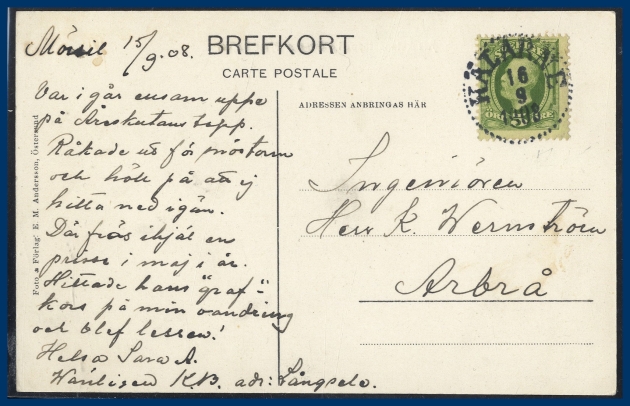 Mörsil 15/9.08.
BREFKORT
CARTE POSTALE
ADRESSEN ANBRINGAS HÄR
Var i går ensam uppe
på Åreskutans topp.
Råkade ut för snöstorm
och höll på att ej
hitta ned igen.
Där frös ihjäl en
prins i maj i år.
Hittade hans "graf-
kors på min vandring
och blef lessen!
Helsa Sara A.
Vänligen K.B. adr: Långsele.
Ingeniören
Herr K. Wernström
Arbrå
Foto & Förlag: E. M. Andersson, Östersund
KÄLARNE
16
9
1908